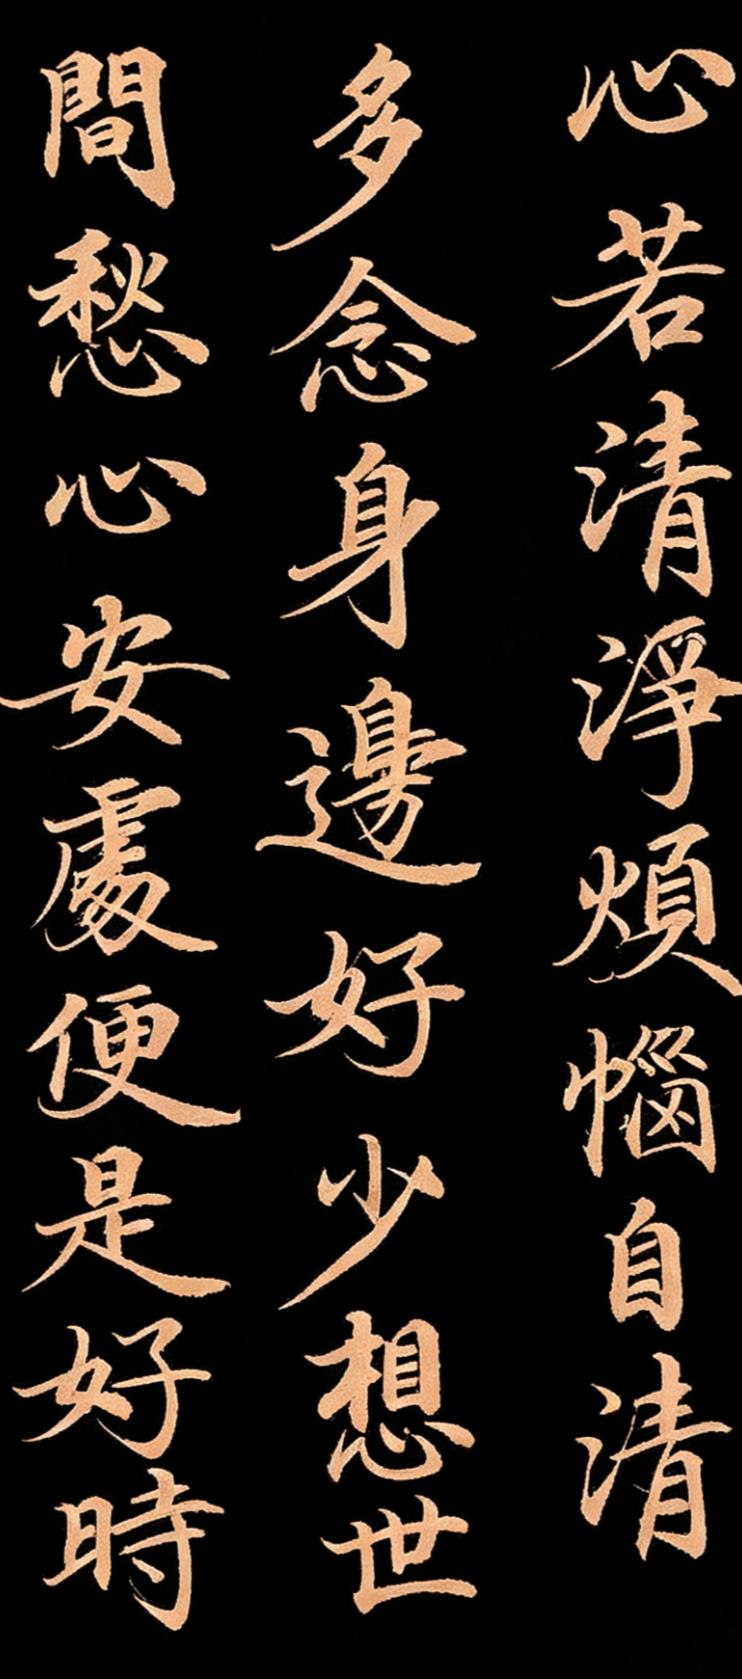 心若清淨煩惱自清
多念身邊好少想世
間愁心安處便是好時